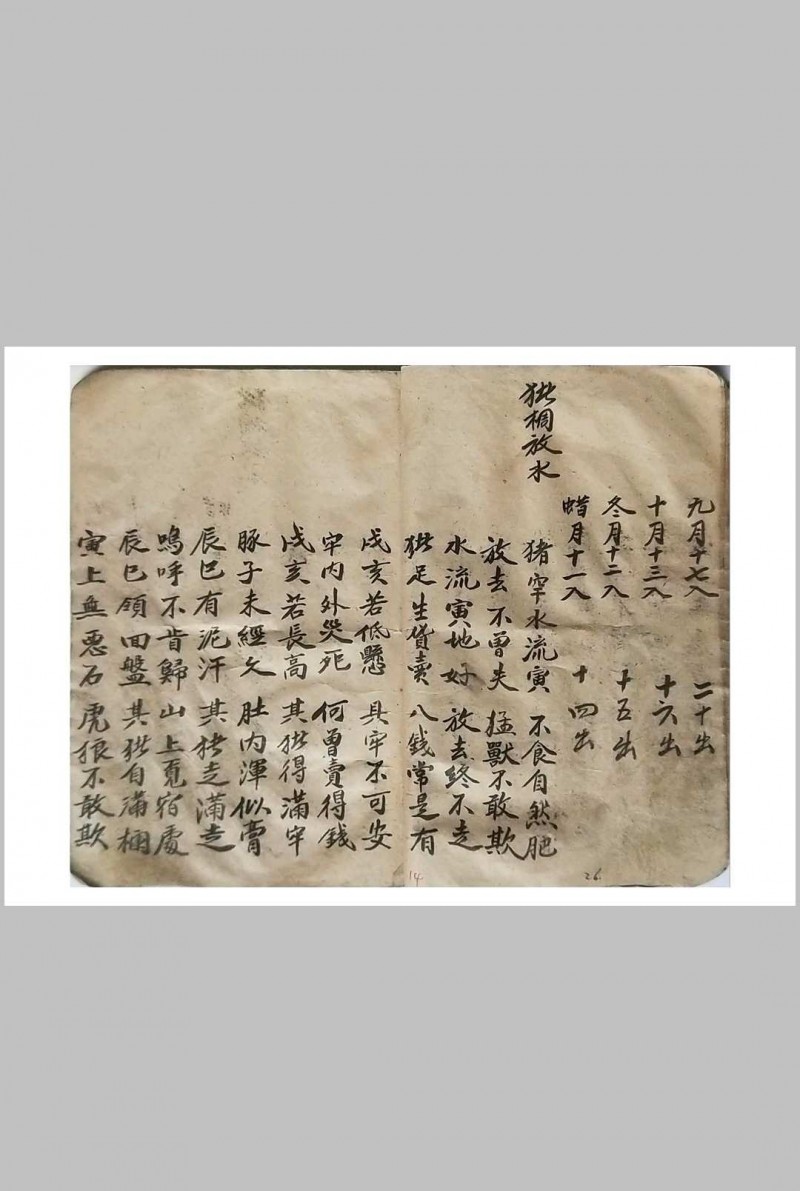 九月十七入 二十出
十月十三入 十六出
冬月十二入 十五出
蜡月十一入 十四出
放水
猪牢水流寅 不食自然肥
放去不曾失 猛獸不敢欺
水流寅地好 放去終不走
足生貨賣 八錢常是有
戊亥若低懸 具牢不可安
牢内外災死 何曾賣得錢
戌亥若長高 其得滿牢
豚子未經久 肚内渾似膏
辰巳有泥汗 其走滿走
鳴呼不肯歸 山上覓宿處
辰巳領回盤 其自滿棚
寅上無惡石 虎狼不敢欺
14
26